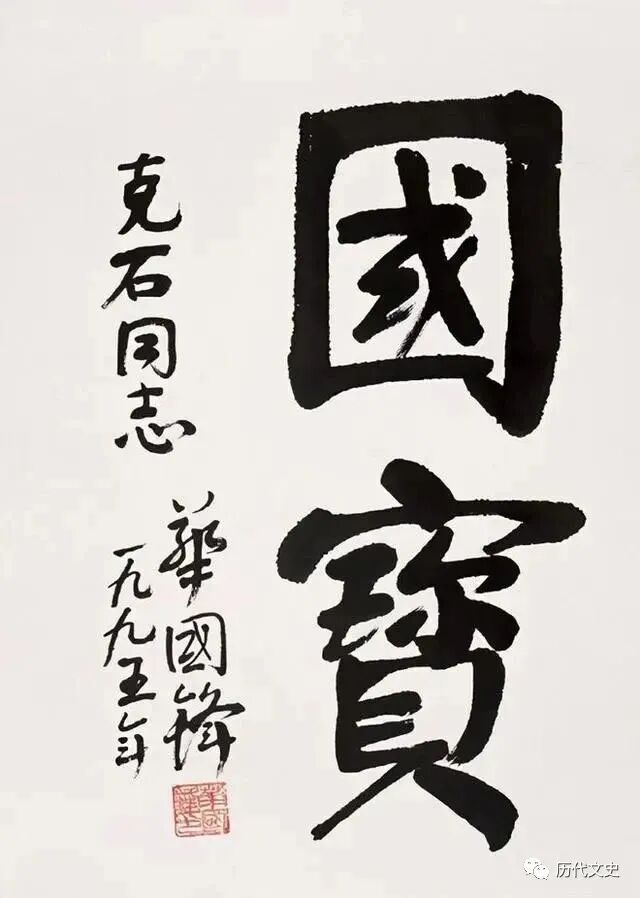 國
寳
克石同志
華國鋒
一九九五年
历代文史